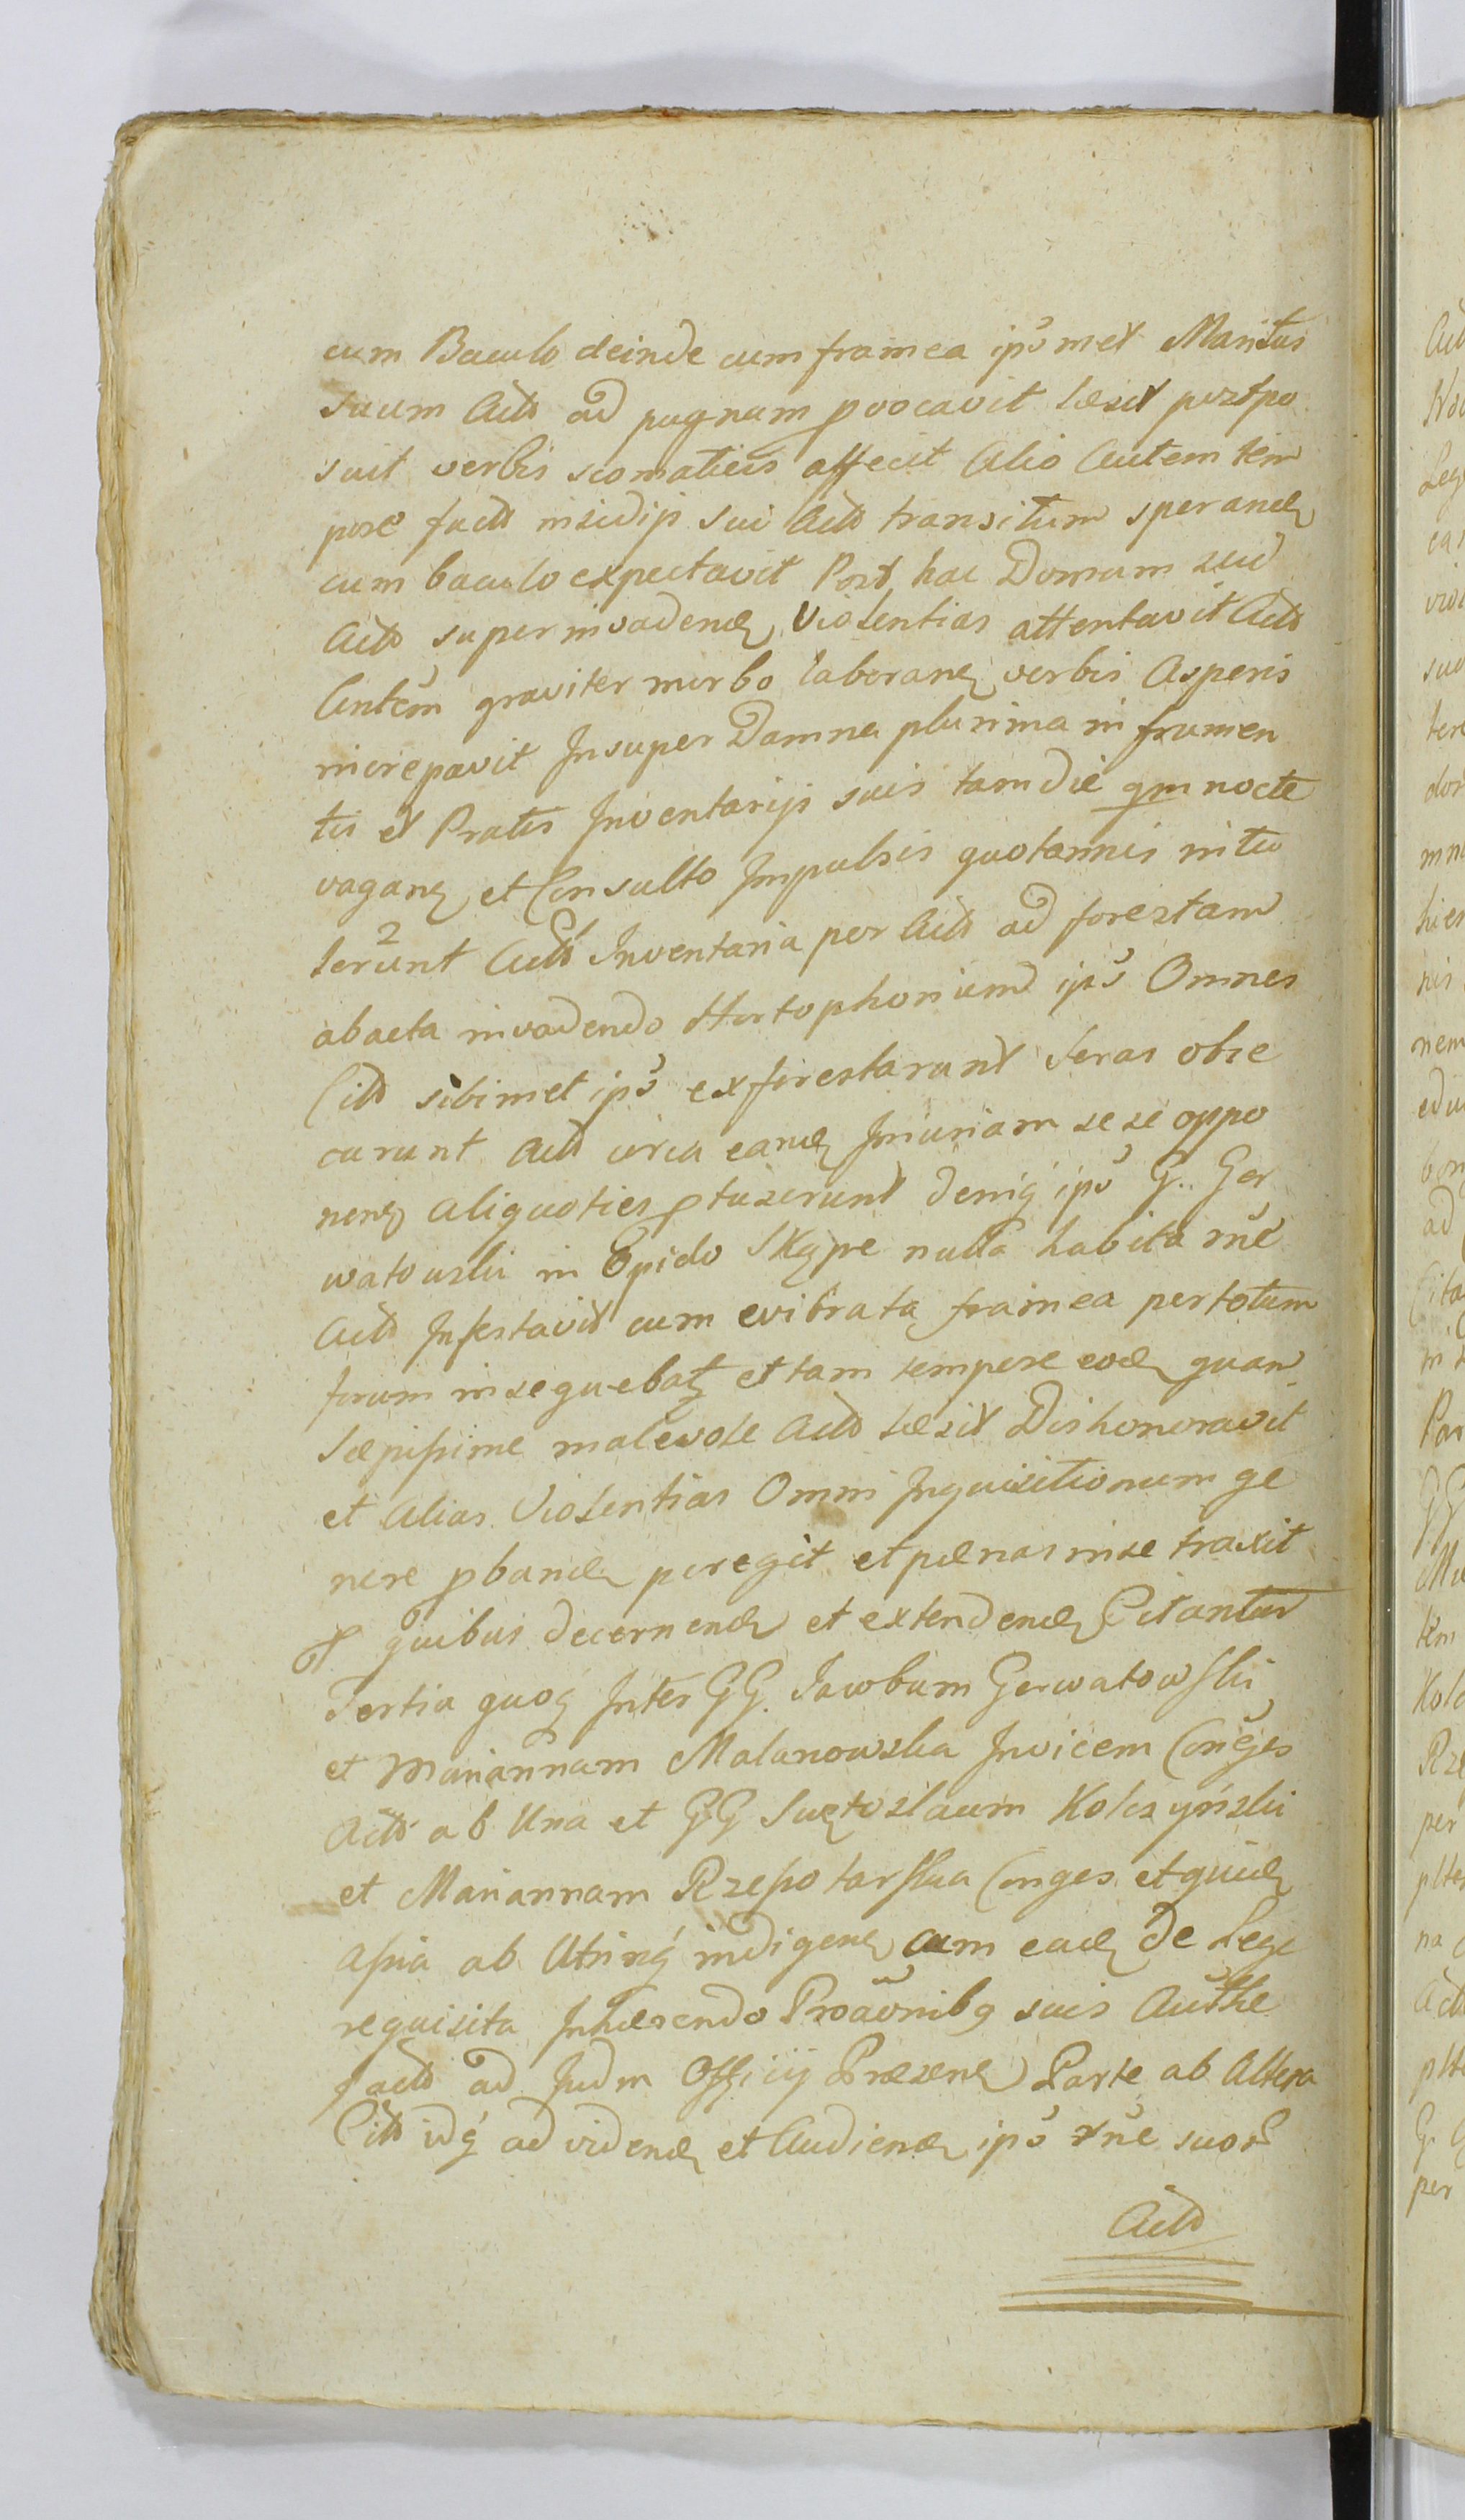 cum Baculo deinde cum framea ipsumet Maritus
suum Actō ad pugnam provocavit læsit postpo
suit verbis scomaticis affecit Alio Autem tem
pore factō insidijs sui Actō transitum sperand
cum baculo expectavit Post hac Domum sui
Actō superinvadend Violentias attentavit Actō
Autem graviter morbo laboran verbis Asperis
increpavit Insuper Damna plurima in frumen
tis et Pratis Inventarijs suis tam die qm nocte
vagan et Consulto Impulsis quotannis intu
lerunt Actō Inventaria per Actō ad forestam
abacta invadendo Hortophorium ips Omnes
Citō sibimet ips exforestarunt Seras obse
carunt Actō circa eand Injuriam sese oppo
nen aliquoties ptuserunt deniq ips G. Ger
watowski in Opido Skępe nulla habita rne
Actō Infestavit cum evibrata framea per totum
forum insequebat et tam tempore eod quam
Sæpissime malevole Actō læsit Dishonoravit
et Alias Violentias Omni Inquisitionum ge
nere pband peregit et pœnas in se traxit
P quibus decernend et extendend Citantur
Tertia quoq Inter GG. Jacobum Gerwatowski
et Mariannam Malanowska Invicem Conges
Actō ab Una et GG Swętosłaum Kolczyński
et Mariannam Rzeszotarska Conges et quid
Assia ab Utrinq indigen cum ead de Lege
requisita Inhærendo Proaonibq suis Authe
Pactō ad Judm Officij Præsen Parte ab Altera
Citō idq ad videnđ et Audiend ips rne suor
Actō